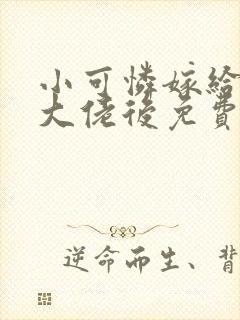 小可憐嫁給
大佬後免費
逆命而生、背